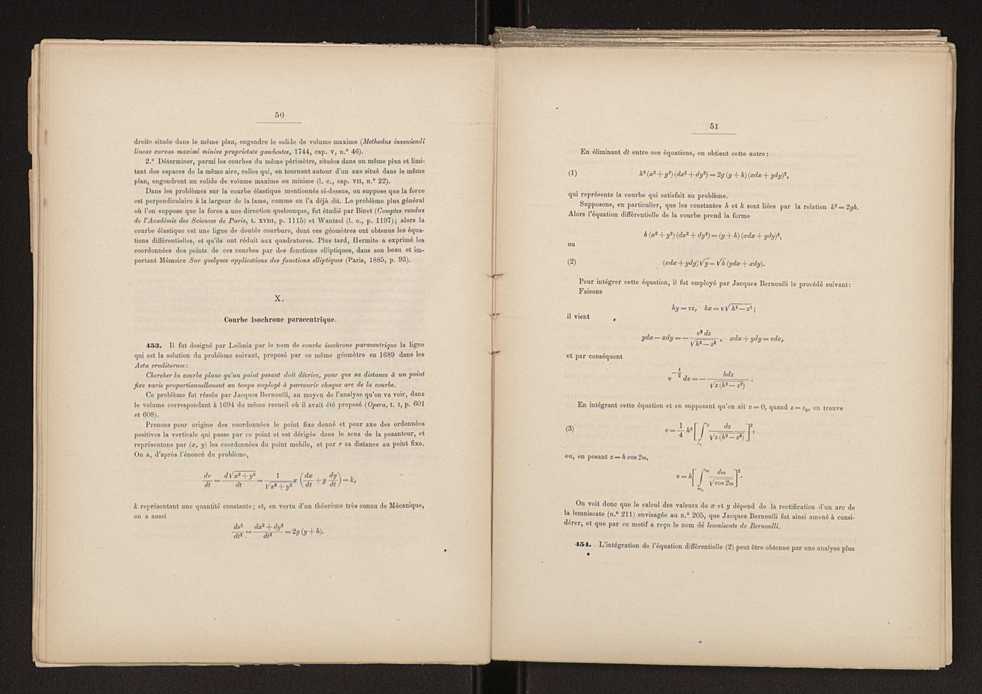 50
droite située dans le même plan, engendre le solide de volume maximo (Methodus inveniendi
lineas curvas maximi minive proprietate gaudentes, 1744, cap. v, n.º 46).
2.º Déterminer, parmi les courbes du même périmètre, situées dans un même plan et limi-
tant des espaces de la même aire, celles qui, en tournant autour d'un axe situé dans le même
plan, engendrent un solide de volume maxime ou minime (l. c., cap. VII, n.º 22).
Dans les problèmes sur la courbe élastique mentionnés ci-dessus, on suppose que la force
est perpendiculaire à la largeur de la lame, comme on l'a déjà dit. Le problème plus général
où l'on suppose que la force a une direction quelconque, fut étudié par Binet (Comptes rendus
de l'Académie des Sciences de Paris, t. XVIII, p. 1115) et Wantzel (l. c., p. 1197); alors la
courbe élastique est une ligne de double courbure, dont ces géomètres ont obtenu les équa-
tions différentielles, et qu'ils ont réduit aux quadratures. Plus tard, Hermite a exprimé les
coordonnées des points de ces courbes par des fonctions elliptiques, dans son beau et im-
portant Mémoire Sur quelques applications des fonctions elliptiques (Paris, 1885, p. 93).
X.
Courbe isochrone paracentrique.
453. Il fut designé par Leibniz par le nom de courbe isochrone paracentrique la ligne
qui est la solution du problème suivant, proposé par ce même géomètre en 1689 dans les
Acta eruditorum:
Chercher la courbe plane qu'un point pesant doit décrire, pour que sa distance à un point
fixe varie proportionnellement au temps employé à parcourir chaque arc de la courbe.
Ce problème fut résolu par Jacques Bernoulli, au moyen de l'analyse qu'on va voir, dans
le volume correspondant à 1694 du même recueil où il avait été proposé (Opera, t. I, p. 601
et 608).
Prenons pour origine des coordonnées le point fixe donné et pour axe des ordonnées
positives la verticale qui passe par ce point et est dérigée dans le sens de la pesanteur, et
représentons par (x, y) les coordonnées du point mobile, et par r sa distance au point fixe.
On a, d'après l'énoncé du problème,
dr/dt = d√x²+y²/dt = 1/√x²+y² (x dx/dt + y dy/dt) = k,
k représentant une quantité constante; et, en vertu d'un théorème très connu de Mécanique,
on a aussi
ds²/dt² = dx²+dy²/dt² = 2g (y + h).
51
En éliminant dt entre ces équations, on obtient cette autre:
(1) k² (x² + y²) (dx² + dy²) = 2g (y + h) (xdx + ydy)²,
qui représente la courbe qui satisfait au problème.
Supposons, en particulier, que les constantes h et k sont liées par la relation k² = 2gh.
Alors l'équation différentielle de la courbe prend la forme
h (x² + y²) (dx² + dy²) = (y + h) (xdx + ydy)²,
ou
(2) (xdx + ydy) √y = √h (ydx + xdy).
Pour intégrer cette équation, il fut employé par Jacques Bernoulli le procédé suivant:
Faisons
hy = vz, hx = v √h² — z²;
il vient
ydx — xdy = — v² dz/√h² — z², xdx + ydy = vdv,
et par conséquent
v^(-1/2) dv = — hdz/√z (h² — z²).
En intégrant cette équation et en supposant qu'on ait v = 0, quand z = z₀, on trouve
(3) v = 1/4 h² [∫ dz/√z (h² — z²)]²,
ou, en posant z = h cos 2ω,
v = h [∫ dω/√cos 2ω]².
On voit donc que le calcul des valeurs de x et y dépend de la rectification d'un arc de
la lemniscate (n.º 211) envisagée au n.º 205, que Jacques Bernoulli fut ainsi amené à consi-
dérer, et que par ce motif a reçu le nom de lemniscate de Bernoulli.
454. L'intégration de l'équation différentielle (2) peut être obtenue par une analyse plus